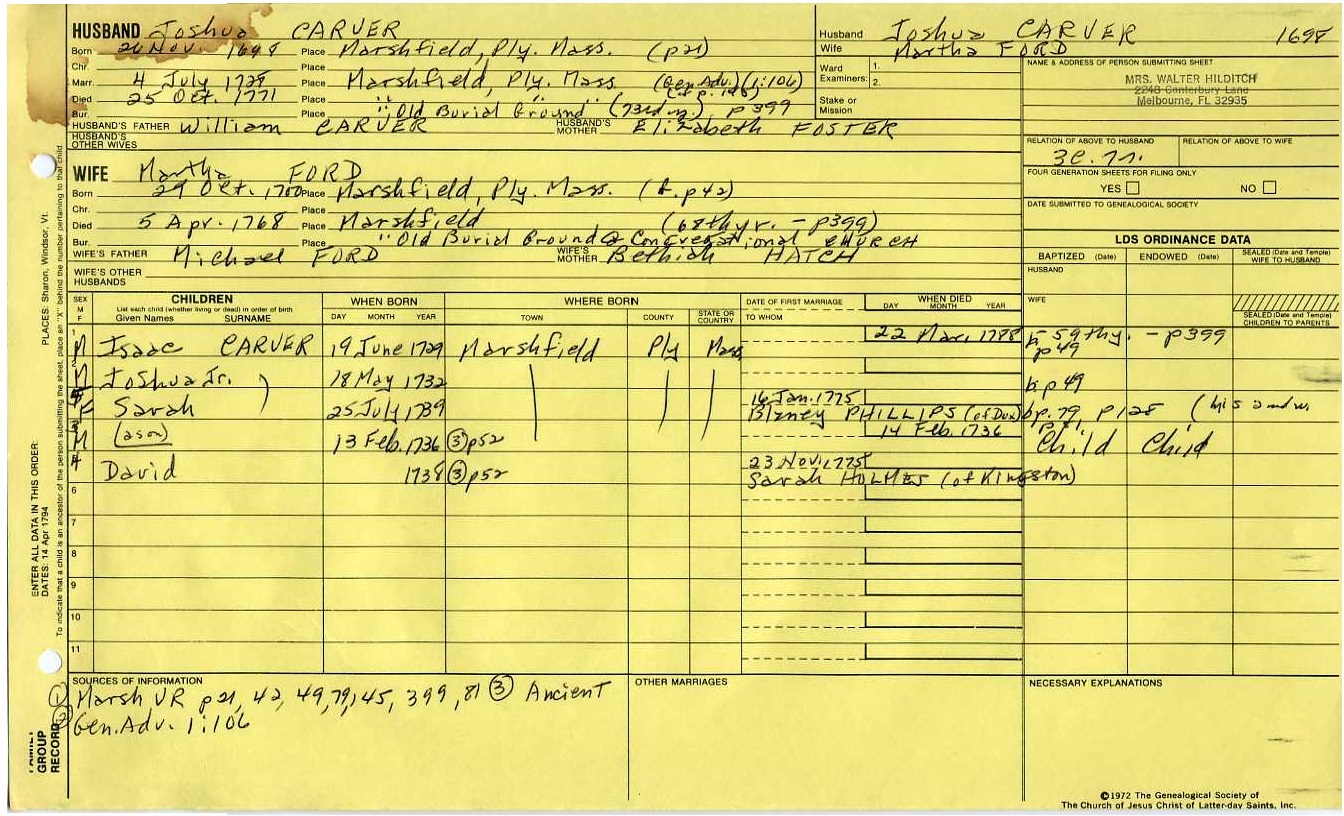 HUSBAND Joshua CARVER
Born 26 Nov. 1698 Place Marshfield, Ply. Mass. (p21)
Chr. Place
Marr. 4 July 1728 Place Marshfield, Ply. Mass. (Gen. Adv.) (1:106)
Died 25 Oct. 1771 Place " "
Bur. Place "Old Burial Ground" (73rd yr.) p399
HUSBAND'S FATHER William CARVER HUSBAND'S MOTHER Elizabeth FOSTER
HUSBAND'S OTHER WIVES
Husband Joshua CARVER 1698
Wife Martha FORD
Ward 1.
Examiners: 2.
Stake or Mission
NAME & ADDRESS OF PERSON SUBMITTING SHEET
MRS. WALTER HILDITCH
2248 Canterbury Lane
Melbourne, FL 32935
RELATION OF ABOVE TO HUSBAND RELATION OF ABOVE TO WIFE
FOUR GENERATION SHEETS FOR FILING ONLY
YES NO
DATE SUBMITTED TO GENEALOGICAL SOCIETY
WIFE Martha FORD
Born 29 Oct. 1700 Place Marshfield, Ply. Mass. (b. p42)
Chr. Place
Died 5 Apr. 1768 Place Marshfield (68th yr. - p399)
Bur. Place "Old Burial Ground @ Congregational CHURCH
WIFE'S FATHER Michael FORD WIFE'S MOTHER Bethiah HATCH
WIFE'S OTHER HUSBANDS
LDS ORDINANCE DATA
BAPTIZED (Date) ENDOWED (Date) SEALED (Date and Temple) WIFE TO HUSBAND
HUSBAND
WIFE
SEALED (Date and Temple) CHILDREN TO PARENTS
SEX M F CHILDREN WHEN BORN WHERE BORN DATE OF FIRST MARRIAGE WHEN DIED
List each child (whether living or dead) in order of birth
Given Names SURNAME DAY MONTH YEAR TOWN COUNTY STATE OR COUNTRY TO WHOM DAY MONTH YEAR
1 M Isaac CARVER 19 June 1729 Marshfield Ply Mass 22 Mar. 1788 b 59thy. - p399
p49
M Joshua Jr. 18 May 1732 b p49
16 Jan. 1775
F Sarah 25 July 1739 Blaney PHILLIPS (of Dux) bp. 79, p128 (his 2nd w.
M (a son) 13 Feb. 1736 (3) p52 14 Feb. 1736 Child Child
4 David 1738 (3) p52 23 Nov. 1775
Sarah HOLMES (of Kingston)
6
7
8
9
10
11
SOURCES OF INFORMATION OTHER MARRIAGES NECESSARY EXPLANATIONS
(1) Marsh VR p21, 42, 49, 79, 145, 399, 81 (3) Ancient
(2) Gen. Adv. 1:106
FAMILY GROUP RECORD
ENTER ALL DATA IN THIS ORDER:
DATES: 14 Apr 1794
PLACES: Sharon, Windsor, Vt.
To indicate that a child is an ancestor of the person submitting the sheet, place an "X" behind the number pertaining to that child.
©1972 The Genealogical Society of
The Church of Jesus Christ of Latter-day Saints, Inc.